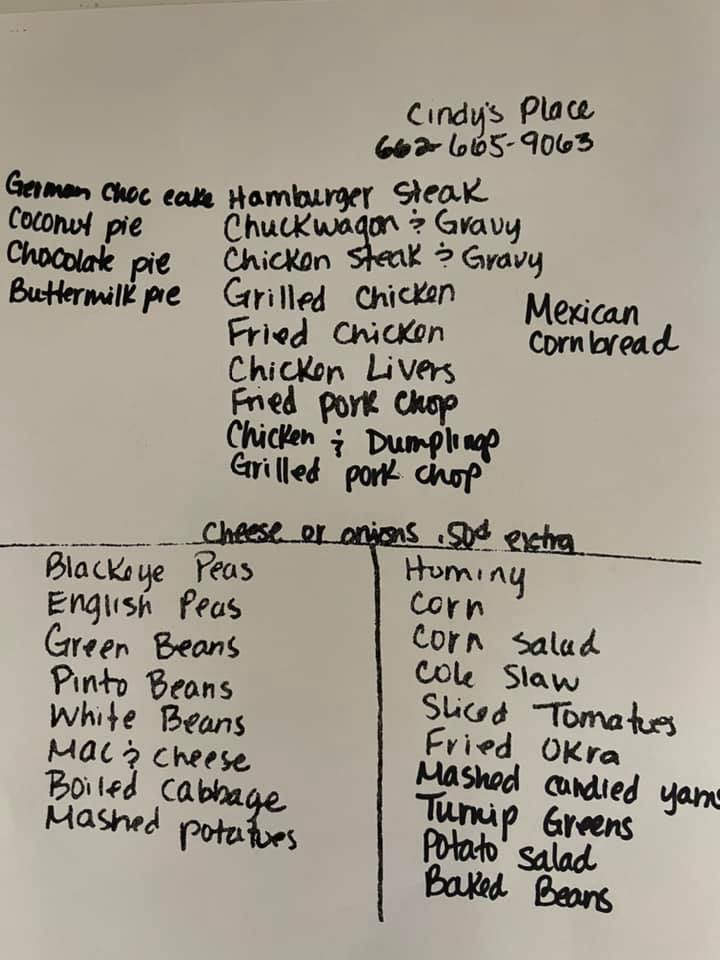 Cindy's Place
662-665-9063
German Choc cake
Coconut pie
Chocolate pie
Buttermilk pie
Hamburger Steak
Chuckwagon & Gravy
Chicken Steak & Gravy
Grilled Chicken
Fried Chicken
Chicken Livers
Fried pork chop
Chicken & Dumplings
Grilled pork chop
Mexican
cornbread
Cheese or onions .50¢ extra
Blackeye Peas
English Peas
Green Beans
Pinto Beans
White Beans
Mac & cheese
Boiled Cabbage
Mashed potatoes
Hominy
Corn
Corn Salad
Cole Slaw
Sliced Tomatoes
Fried Okra
Mashed candied yams
Turnip Greens
Potato Salad
Baked Beans